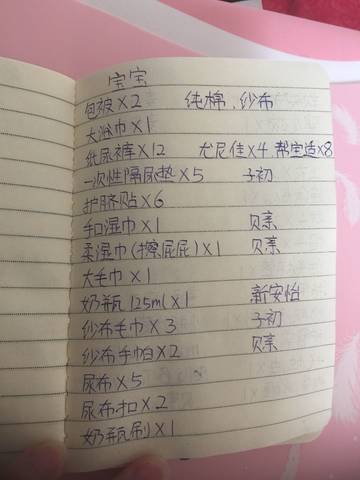 宝宝
包被×2 纯棉、纱布
大浴巾×1
纸尿裤×12 尤妮佳×4 帮宝适×8
一次性隔尿垫×5 子初
护脐贴×6
手口湿巾×1 贝亲
柔湿巾(擦屁屁)×1 贝亲
大毛巾×1
奶瓶125ml×1 新安怡
纱布毛巾×3 子初
纱布手帕×2 贝亲
尿布×5
尿布扣×2
奶瓶刷×1